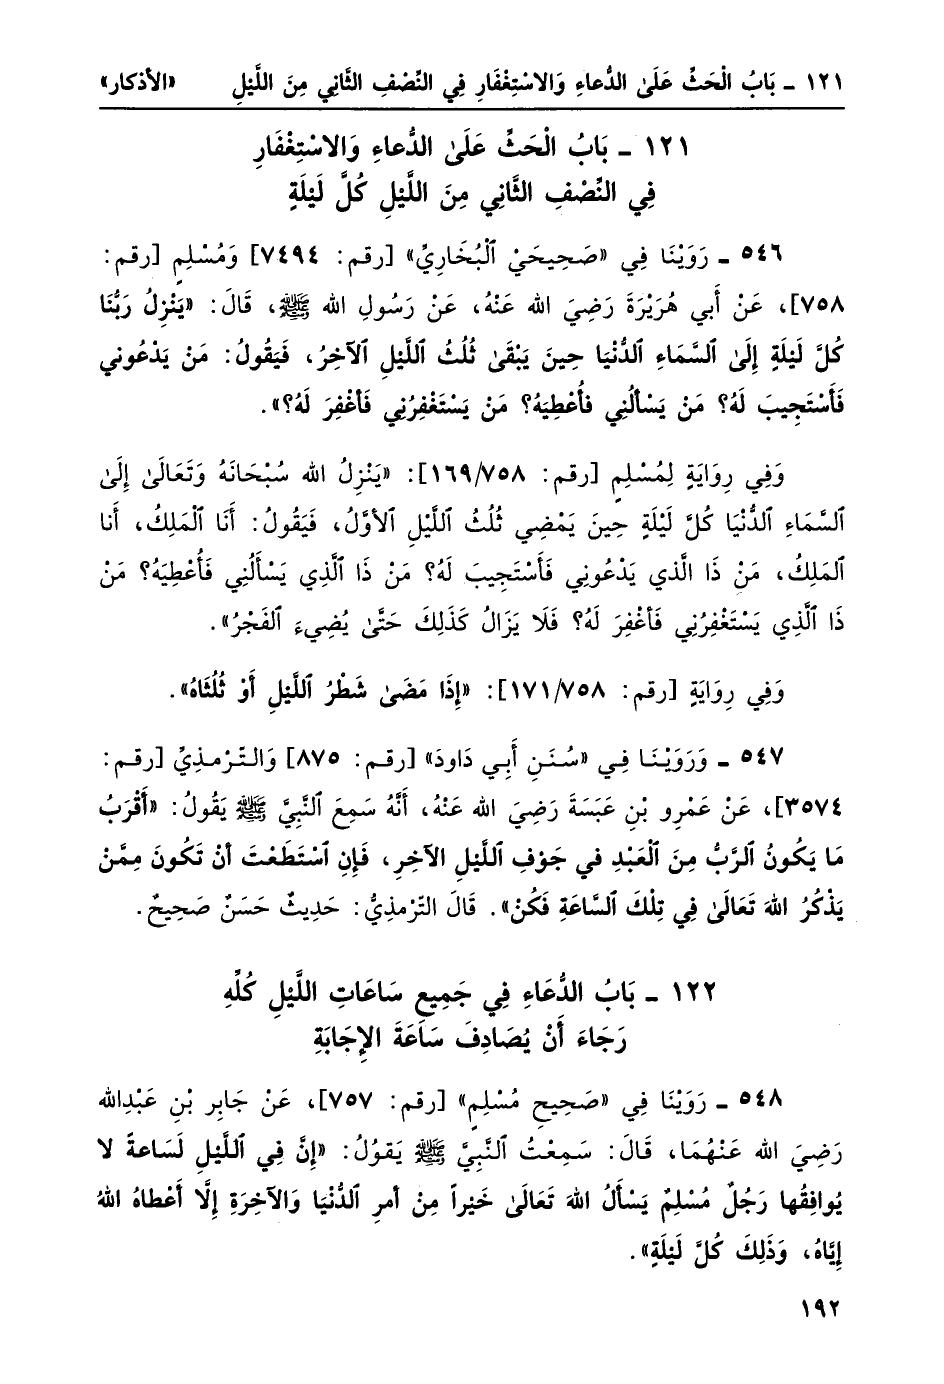 ١٢١ ـ بَابُ الْحَثِّ عَلَىٰ الدُّعاءِ وَالاسْتِغْفَارِ فِي النِّصْفِ الثَّانِي مِنَ اللَّيْلِ «الأذكار»
١٢١ ـ بَابُ الْحَثِّ عَلَىٰ الدُّعاءِ وَالاسْتِغْفَارِ
فِي النِّصْفِ الثَّانِي مِنَ اللَّيْلِ كُلَّ لَيْلَةٍ
٥٤٦ ـ رَوَيْنَا فِي «صَحِيحَيْ ٱلْبُخَارِيِّ» [رقم: ٧٤٩٤] وَمُسْلِمٍ [رقم:
٧٥٨]، عَنْ أَبي هُرَيْرَةَ رَضِيَ الله عَنْهُ، عَنْ رَسُولِ الله ﷺ، قَالَ: «يَنْزِلُ رَبُّنَا
كُلَّ لَيْلَةٍ إِلَىٰ ٱلسَّمَاءِ ٱلدُّنْيَا حِينَ يَبْقَىٰ ثُلُثُ ٱللَّيْلِ ٱلآخِرُ، فَيَقُولُ: مَنْ يَدْعُوني
فَأَسْتَجِيبَ لَهُ؟ مَنْ يَسْألُنِي فأُعْطِيَهُ؟ مَنْ يَسْتَغْفِرُنِي فَأغْفِرَ لَهُ؟».
وَفِي رِوَايَةٍ لِمُسْلِمٍ [رقم: ١٦٩/٧٥٨]: «يَنْزِلُ الله سُبْحَانَهُ وَتَعَالَىٰ إِلَىٰ
ٱلسَّمَاءِ ٱلدُّنْيَا كُلَّ لَيْلَةٍ حِينَ يَمْضِي ثُلُثُ ٱللَّيْلِ ٱلأوَّلُ، فَيَقُولُ: أَنَا ٱلْمَلِكُ، أَنا
ٱلمَلِكُ، مَنْ ذَا الَّذي يَدْعُونِي فَأسْتَجِيبَ لَهُ؟ مَنْ ذَا ٱلَّذِي يَسْأَلُنِي فَأُعْطِيَهُ؟ مَنْ
ذَا ٱلَّذِي يَسْتَغْفِرُنِي فَأغْفِرَ لَهُ؟ فَلَا يَزَالُ كَذَلِكَ حَتَّىٰ يُضِيءَ ٱلفَجْرُ».
وَفِي رِوَايَةٍ [رقم: ١٧١/٧٥٨]: «إِذَا مَضَىٰ شَطْرُ ٱللَّيْلِ أَوْ ثُلُثَاهُ».
٥٤٧ ـ وَرَوَيْنَا فِي «سُنَنِ أَبِي دَاودَ» [رقم: ٨٧٥] وَالتِّرْمذِيِّ [رقم:
٣٥٧٤]، عَنْ عَمْرِو بْنِ عَبَسَةَ رَضِيَ الله عَنْهُ، أَنَّهُ سَمِعَ ٱلنَّبِيَّ ﷺ يَقُولُ: «أَقْرَبُ
مَا يَكُونُ ٱلرَّبُّ مِنَ ٱلْعَبْدِ في جَوْفِ ٱللَّيْلِ الآخِرِ، فَإِنِ ٱسْتَطَعْتَ أَنْ تَكُونَ مِمَّنْ
يَذْكُرُ اللهَ تَعَالَىٰ فِي تِلْكَ ٱلسَّاعَةِ فَكُنْ». قَالَ التِّرْمذِيُّ: حَدِيثٌ حَسَنٌ صَحِيحٌ.
١٢٢ ـ بَابُ الدُّعَاءِ فِي جَمِيعِ سَاعَاتِ اللَّيْلِ كُلِّهِ
رَجَاءَ أَنْ يُصَادِفَ سَاعَةَ الإِجَابَةِ
٥٤٨ ـ رَوَيْنَا فِي «صَحِيحِ مُسْلِمٍ» [رقم: ٧٥٧]، عَنْ جَابِرِ بْنِ عَبْدِالله
رَضِيَ الله عَنْهُمَا، قَالَ: سَمِعْتُ ٱلنَّبِيَّ ﷺ يَقوُلُ: «إِنَّ فِي ٱللَّيْلِ لَسَاعةً لا
يُوافِقُها رَجُلٌ مُسْلِمٌ يَسْأَلُ اللهَ تَعَالَىٰ خَيْراً مِنْ أمرِ ٱلدُّنْيَا وَالآخِرَةِ إِلَّا أَعْطاهُ اللهُ
إِيَّاهُ، وَذَلِكَ كُلَّ لَيْلَةٍ».
١٩٢